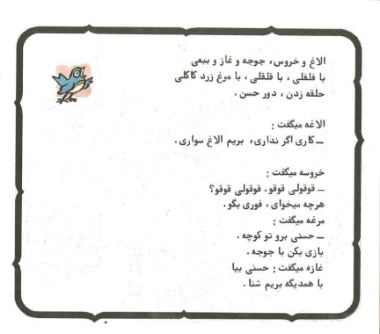 الاغ و خروس، جوجه و غاز و ببعی
با فلفلی ، با قلقلی ، با مرغ زرد کاکلی
حلقه زدن ، دور حسن .
الاغه میگفت :
ــ کاری اگر نداری، بریم الاغ سواری .
خروسه میگفت :
ــ قوقولی قوقو. قوقولی قوقو؟
هرچه میخوای ، فوری بگو .
مرغه میگفت :
ــ حسنی برو تو کوچه .
بازی بکن با جوجه .
غازه میگفت : حسنی بیا
با همدیگه بریم شنا .